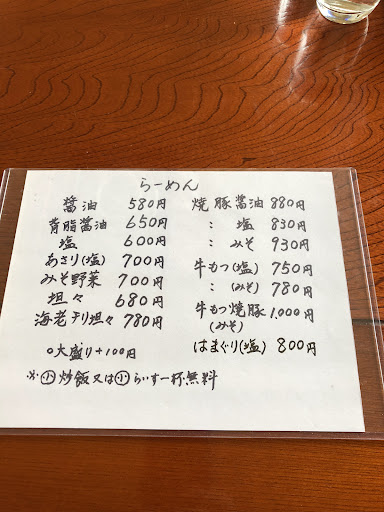 らーめん
醤油 580円
背脂醤油 650円
塩 600円
あさり(塩) 700円
みそ野菜 700円
坦々 680円
海老チリ坦々 780円
○大盛り+100円
※小炒飯又は小らいす一杯無料
焼豚醤油 880円
: 塩 830円
: みそ 930円
牛もつ(塩) 750円
: (みそ) 780円
牛もつ焼豚 1,000円
(みそ)
はまぐり(塩) 800円